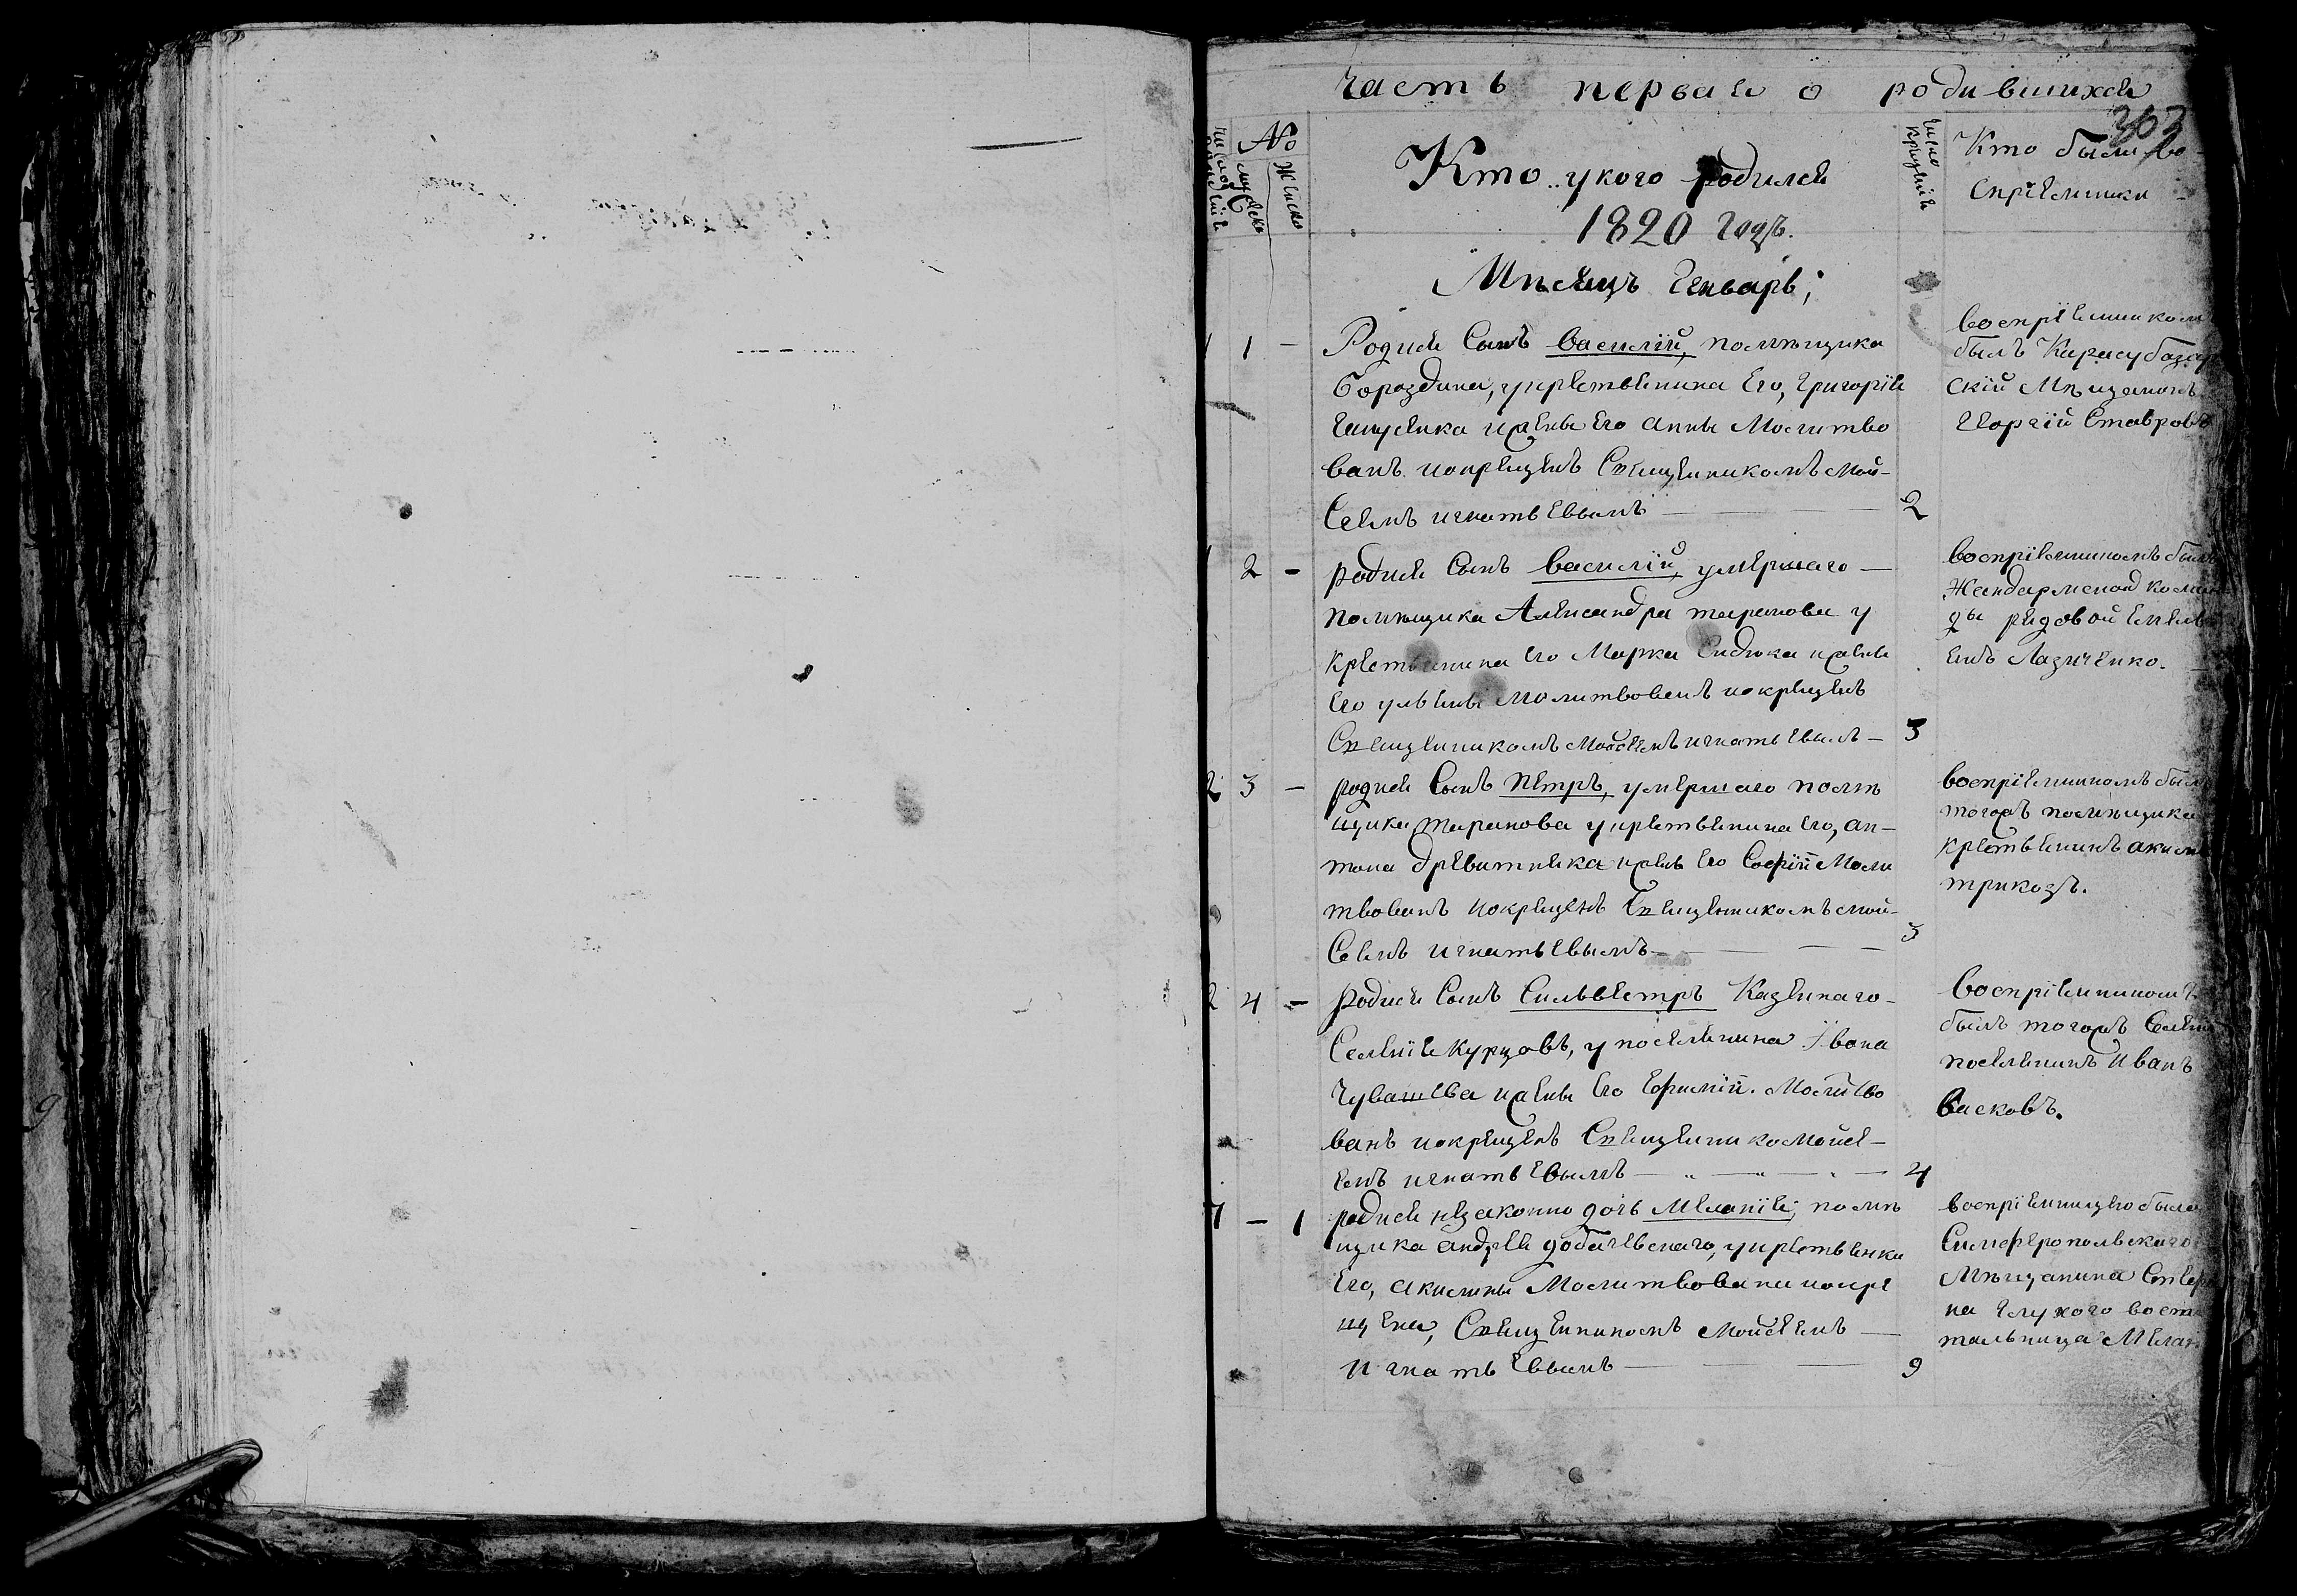 часть первая о родившихся
303
№
мужеска
женска
Кто у кого родился
1820 годъ.
Мѣсяцъ Генварь;
число крещенія
Кто были во-
спріемники
1 1 –
Родися Сынъ василій, помѣщика
Бороздина, укрестьянина Его, григорія
ижены Его анны Молитво
ванъ иокрещенъ Священикомъ Мой-
Сеемъ игнатьевымъ
2
воспріемникомъ
былъ Карасубазар
скій Мѣщанинъ
георгій Ставровъ
1 2 –
родися Сынъ василій, умершаго
помѣщика Александра таранова у
крестьянина его Марка Сидюка ижены
Его ульяны Молитвованъ иокрещенъ
Священикомъ Мойсеемъ игнатьевымъ
3
воспріемникомъ былъ
Жандармской коман
ды рядовой Емелья
енъ Лазиченко.
2 3 –
родися Сынъ Петръ, умершаго помѣ
щика таранова укрестьянина Его, ан-
тона древитняка ижены Его Софіи Моли
твованъ иокрещенъ Священикомъ мой-
Сеемъ игнатьевымъ
3
воспріемникомъ былъ
тогожъ помѣщика
крестьянинъ акимъ
трикозъ.
2 4 –
родися Сынъ Сильвестръ Казенаго
Селенія Курцовъ, у поселянина Ивана
Чувашева ижены Его Ефиміи. Молитво
ванъ иокрещенъ Священико Мойсе-
емъ игнатьевымъ
4
Воспріемникомъ
былъ тогожъ Селенія
поселянинъ Иванъ
Васковъ.
7 – 1
родися незаконно дочь Меланія, помѣ
щика андрея добачевскаго, укрестьянки
Его, акилины Молитвована иокре
щена, Священикомъ Мойсеемъ
игнатьевымъ
9
воспріемницею была
Симферопольскаго
Мѣщанина Севери
на глухого воспи
тальница Мелан